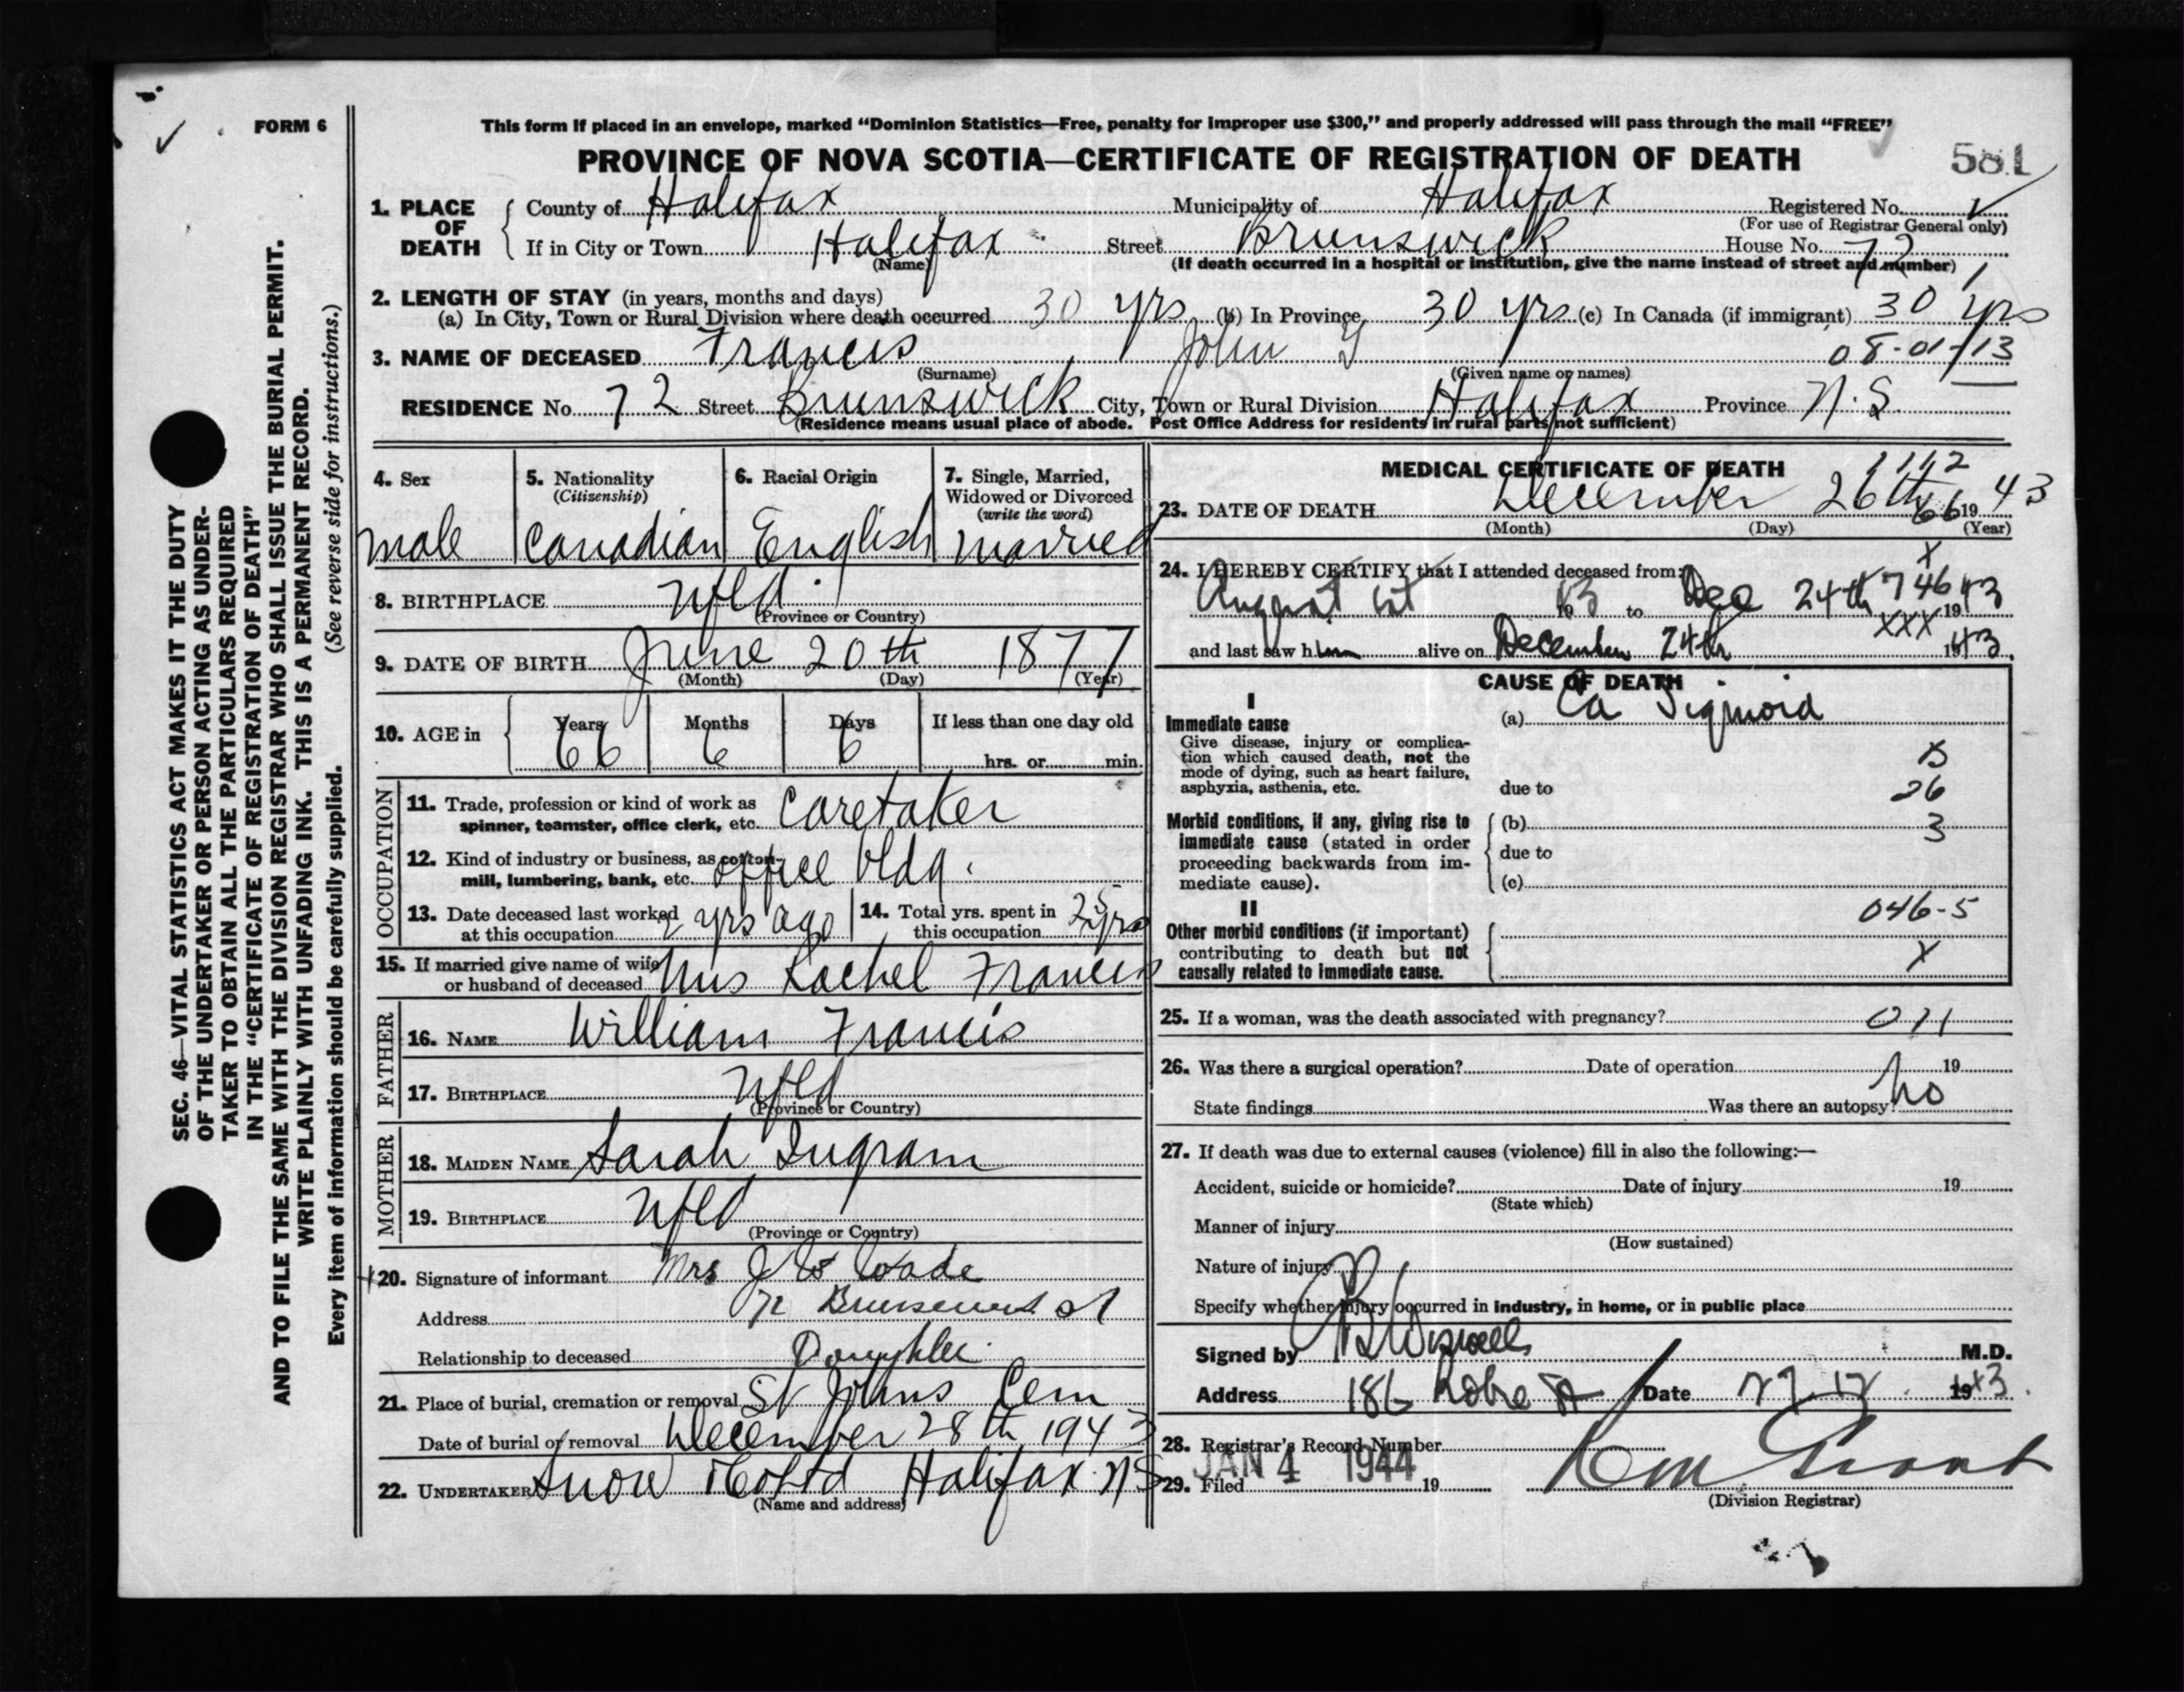 FORM 6
This form if placed in an envelope, marked “Dominion Statistics—Free, penalty for improper use $300,” and properly addressed will pass through the mail “FREE”
PROVINCE OF NOVA SCOTIA—CERTIFICATE OF REGISTRATION OF DEATH
581
1. PLACE OF DEATH County of Halifax Municipality of Halifax Registered No.
(For use of Registrar General only)
If in City or Town Halifax Street Brunswick House No. 72
(Name) (If death occurred in a hospital or institution, give the name instead of street and number)
2. LENGTH OF STAY (in years, months and days)
(a) In City, Town or Rural Division where death occurred 30 yrs (b) In Province 30 yrs (c) In Canada (if immigrant) 30 yrs
3. NAME OF DECEASED Francis John G 08-01-13
(Surname) (Given name or names)
RESIDENCE No. 72 Street Brunswick City, Town or Rural Division Halifax Province N.S.
(Residence means usual place of abode. Post Office Address for residents in rural parts not sufficient)
SEC. 46—VITAL STATISTICS ACT MAKES IT THE DUTY
OF THE UNDERTAKER OR PERSON ACTING AS UNDER-
TAKER TO OBTAIN ALL THE PARTICULARS REQUIRED
IN THE “CERTIFICATE OF REGISTRATION OF DEATH”
AND TO FILE THE SAME WITH THE DIVISION REGISTRAR WHO SHALL ISSUE THE BURIAL PERMIT.
WRITE PLAINLY WITH UNFADING INK. THIS IS A PERMANENT RECORD.
Every item of information should be carefully supplied. (See reverse side for instructions.)
4. Sex 5. Nationality 6. Racial Origin 7. Single, Married,
(Citizenship) Widowed or Divorced
(write the word)
male Canadian English married
8. BIRTHPLACE Nfld
(Province or Country)
9. DATE OF BIRTH June 20th 1877
(Month) (Day) (Year)
10. AGE in Years Months Days If less than one day old
66 6 6 hrs. or min.
OCCUPATION
11. Trade, profession or kind of work as
spinner, teamster, office clerk, etc. Caretaker
12. Kind of industry or business, as cotton-
mill, lumbering, bank, etc. office bldg.
13. Date deceased last worked
at this occupation 2 yrs ago
14. Total yrs. spent in
this occupation 25 yrs
15. If married give name of wife
or husband of deceased Mrs Rachel Francis
FATHER
16. NAME William Francis
17. BIRTHPLACE Nfld
(Province or Country)
MOTHER
18. MAIDEN NAME Sarah Ingram
19. BIRTHPLACE Nfld
(Province or Country)
20. Signature of informant Mrs J W Wade
Address 72 Brunswick St
Relationship to deceased Daughter
21. Place of burial, cremation or removal St Johns Cem
Date of burial or removal December 28th 1943
22. UNDERTAKER Snow & Co Ltd Halifax NS
(Name and address)
MEDICAL CERTIFICATE OF DEATH
1112
23. DATE OF DEATH December 26th 1943
66
(Month) (Day) (Year)
x
24. I HEREBY CERTIFY that I attended deceased from:
August 1st 1943 to Dec 24th 1943
746
xxx
and last saw him alive on December 24th 1943.
CAUSE OF DEATH
I
Immediate cause (a) Ca Sigmoid
Give disease, injury or complica-
tion which caused death, not the
mode of dying, such as heart failure,
asphyxia, asthenia, etc. due to
26
Morbid conditions, if any, giving rise to (b) 3
immediate cause (stated in order due to
proceeding backwards from im-
mediate cause). (c)
II 046-5
Other morbid conditions (if important)
contributing to death but not x
causally related to immediate cause.
25. If a woman, was the death associated with pregnancy? 011
26. Was there a surgical operation? Date of operation 19
State findings Was there an autopsy? no
27. If death was due to external causes (violence) fill in also the following:—
Accident, suicide or homicide? Date of injury 19
(State which)
Manner of injury
(How sustained)
Nature of injury
Specify whether injury occurred in industry, in home, or in public place
Signed by M.D.
Address 186 Date 27.12. 1943.
28. Registrar's Record Number
29. Filed JAN 4 1944 19
(Division Registrar)